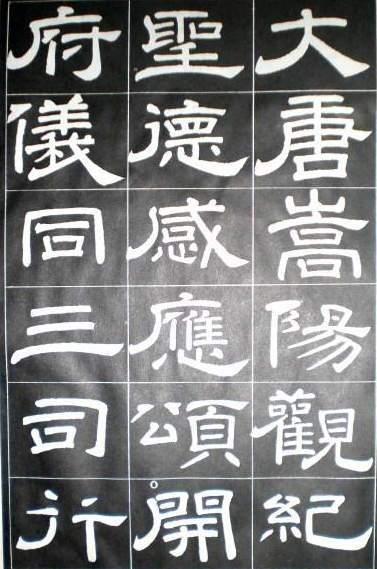 大唐嵩陽觀紀
聖德感應頌開
府儀同三司行